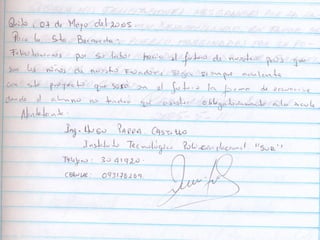 Quito, 07 de Mayo del 2005.
Para la Srta. Benavides:
Felicitaciones por su labor hacia el futuro de nuestro país que
son los niños de nuestro Ecuador siga siempre adelante
con este proyecto que será en el futuro la forma de
donde el alumno no tendrá que asistir obligatoriamente a la escuela
Atentamente:
Ing. Hugo Parra Castillo
Instituto Tecnológico "SUR"
Teléfono: 3041920
Celular: 093170209